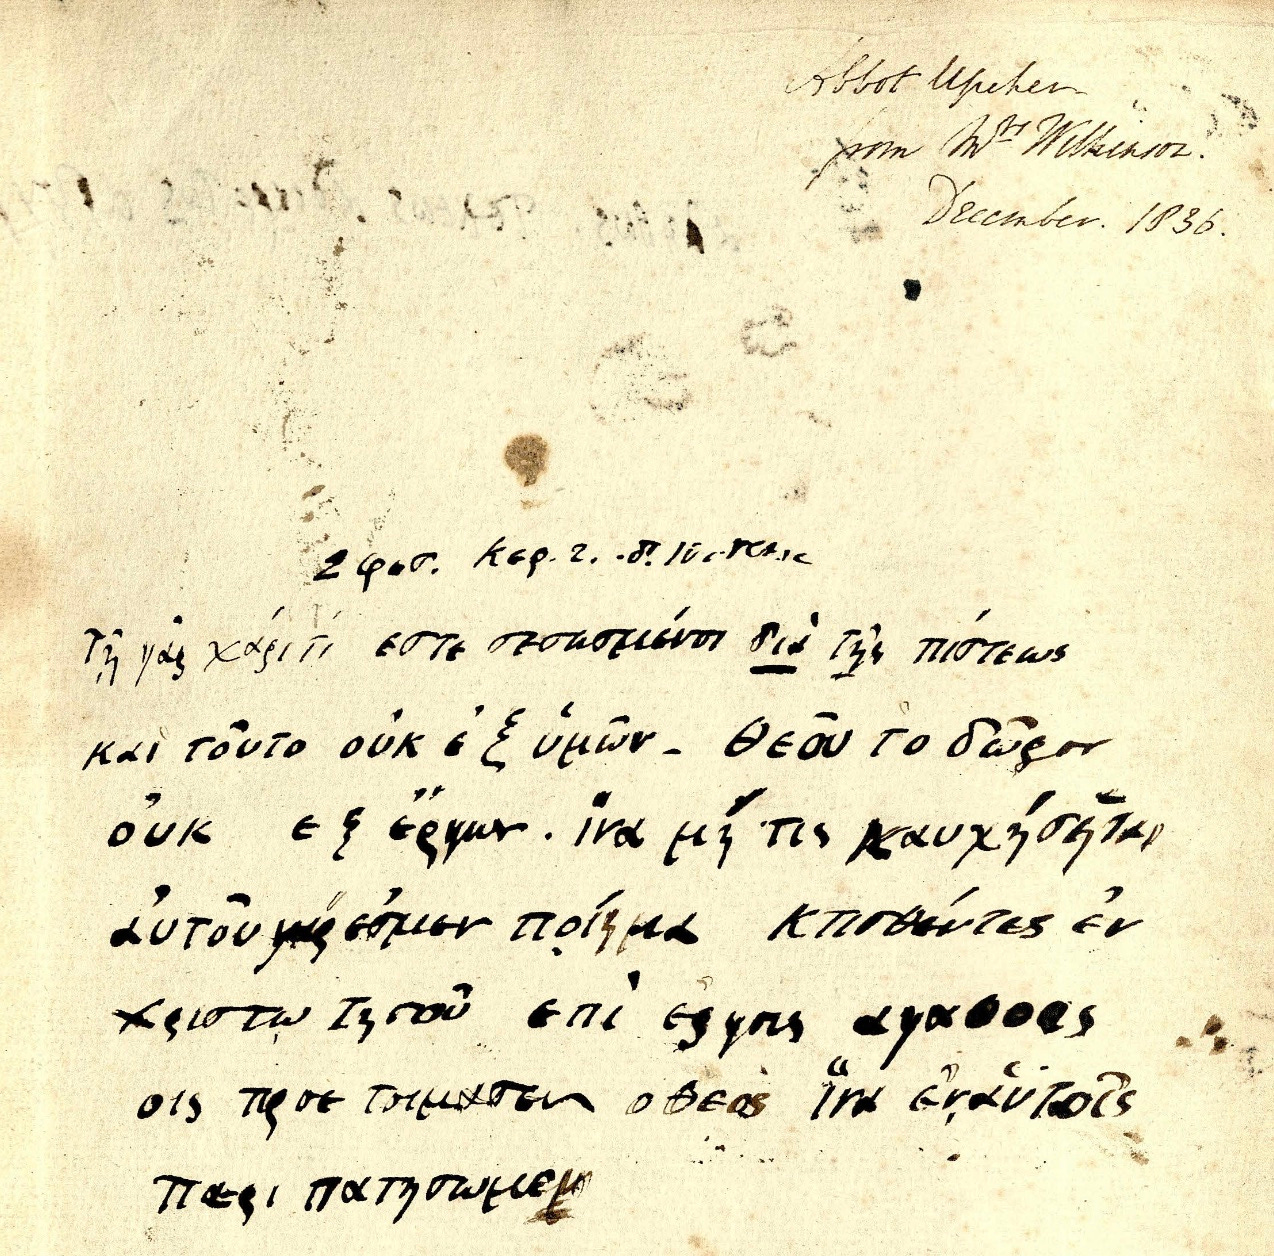 Abbot Upcher
from Mrs Wilkinson.
December. 1836.
Τῇ γὰρ χάριτί εστε σεσωσμένοι διὰ τῆς πίστεως
και τοῦτο οὐκ ἐξ ὑμῶν - Θεοῦ τὸ δῶρον
οὐκ εξ ἔργων. ἵνα μή τις καυχήσηται
ἀυτοῦ γάρ ἐσμεν ποίημα κτισθέντες ἐν
χριστῳ Ιησοῦ επὶ ἔργοις αγαθοις
οις προετοιμασεν ο θεὸς ἵνα ἐν ἀυτοῖς
περι πατησωμεν